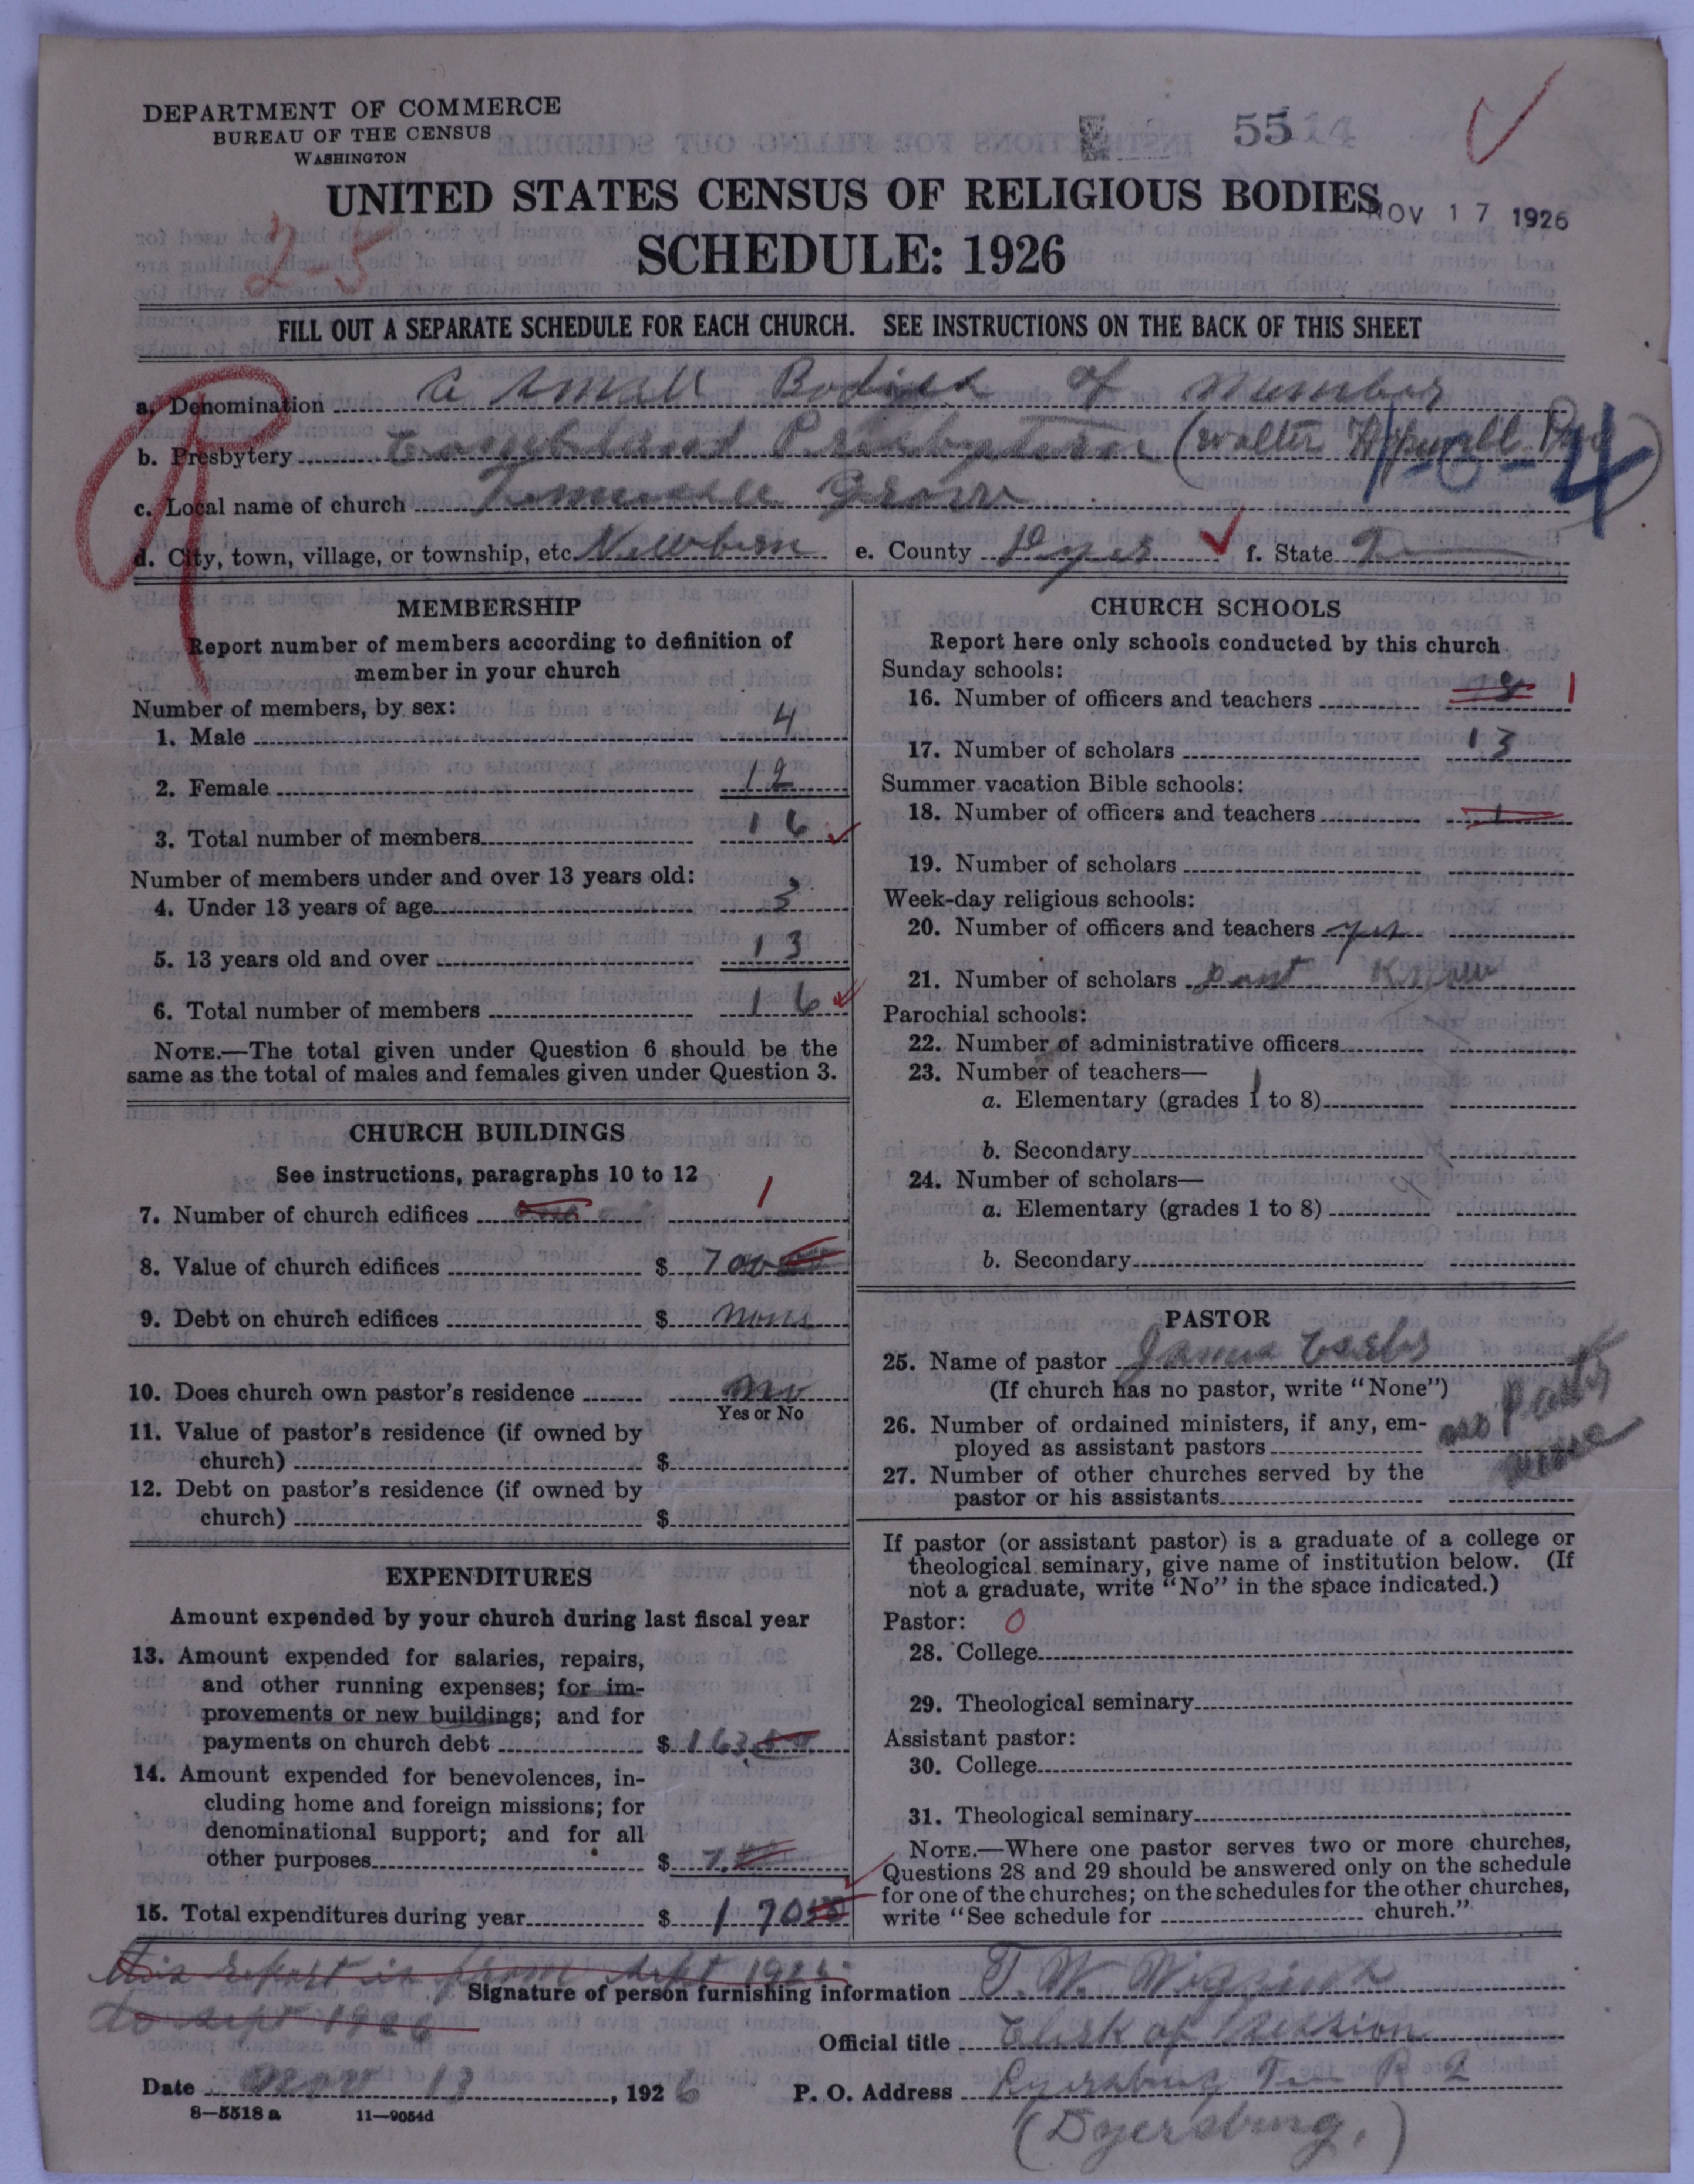 DEPARTMENT OF COMMERCE
BUREAU OF THE CENSUS
WASHINGTON
5514
UNITED STATES CENSUS OF RELIGIOUS BODIES
NOV 17 1926
SCHEDULE: 1926
2-5
FILL OUT A SEPARATE SCHEDULE FOR EACH CHURCH. SEE INSTRUCTIONS ON THE BACK OF THIS SHEET
a. Denomination a small Bodies of number
b. Presbytery Presbyterian (Walter
1-0-4
c. Local name of church Grove
d. City, town, village, or township, etc. Newbern e. County Dyer f. State
MEMBERSHIP
Report number of members according to definition of
member in your church
Number of members, by sex:
1. Male 4
2. Female 12
3. Total number of members 16
Number of members under and over 13 years old:
4. Under 13 years of age 3
5. 13 years old and over 13
6. Total number of members 16
NOTE.—The total given under Question 6 should be the
same as the total of males and females given under Question 3.
CHURCH BUILDINGS
See instructions, paragraphs 10 to 12
7. Number of church edifices 1
8. Value of church edifices $ 700
9. Debt on church edifices $ none
10. Does church own pastor's residence no
Yes or No
11. Value of pastor's residence (if owned by
church) $
12. Debt on pastor's residence (if owned by
church) $
EXPENDITURES
Amount expended by your church during last fiscal year
13. Amount expended for salaries, repairs,
and other running expenses; for im-
provements or new buildings; and for
payments on church debt $ 163.50
14. Amount expended for benevolences, in-
cluding home and foreign missions; for
denominational support; and for all
other purposes $ 7.00
15. Total expenditures during year $ 170 50
CHURCH SCHOOLS
Report here only schools conducted by this church
Sunday schools:
16. Number of officers and teachers 1
17. Number of scholars 13
Summer vacation Bible schools:
18. Number of officers and teachers 1
19. Number of scholars
Week-day religious schools:
20. Number of officers and teachers yes
21. Number of scholars dont Know
Parochial schools:
22. Number of administrative officers
23. Number of teachers—
a. Elementary (grades 1 to 8)
b. Secondary
24. Number of scholars—
a. Elementary (grades 1 to 8)
b. Secondary
PASTOR
25. Name of pastor James
(If church has no pastor, write "None")
26. Number of ordained ministers, if any, em-
ployed as assistant pastors no
27. Number of other churches served by the
pastor or his assistants none
If pastor (or assistant pastor) is a graduate of a college or
theological seminary, give name of institution below. (If
not a graduate, write "No" in the space indicated.)
Pastor: 0
28. College
29. Theological seminary
Assistant pastor:
30. College
31. Theological seminary
NOTE.—Where one pastor serves two or more churches,
Questions 28 and 29 should be answered only on the schedule
for one of the churches; on the schedules for the other churches,
write "See schedule for church."
this report is from sept 1925
to sept 1926
Signature of person furnishing information T. W. Wiggins
Official title Clerk of Session
Date 13, 1926 P. O. Address Dyersburg Ten R 2
8—5518 a 11—9054d
(Dyersburg.)